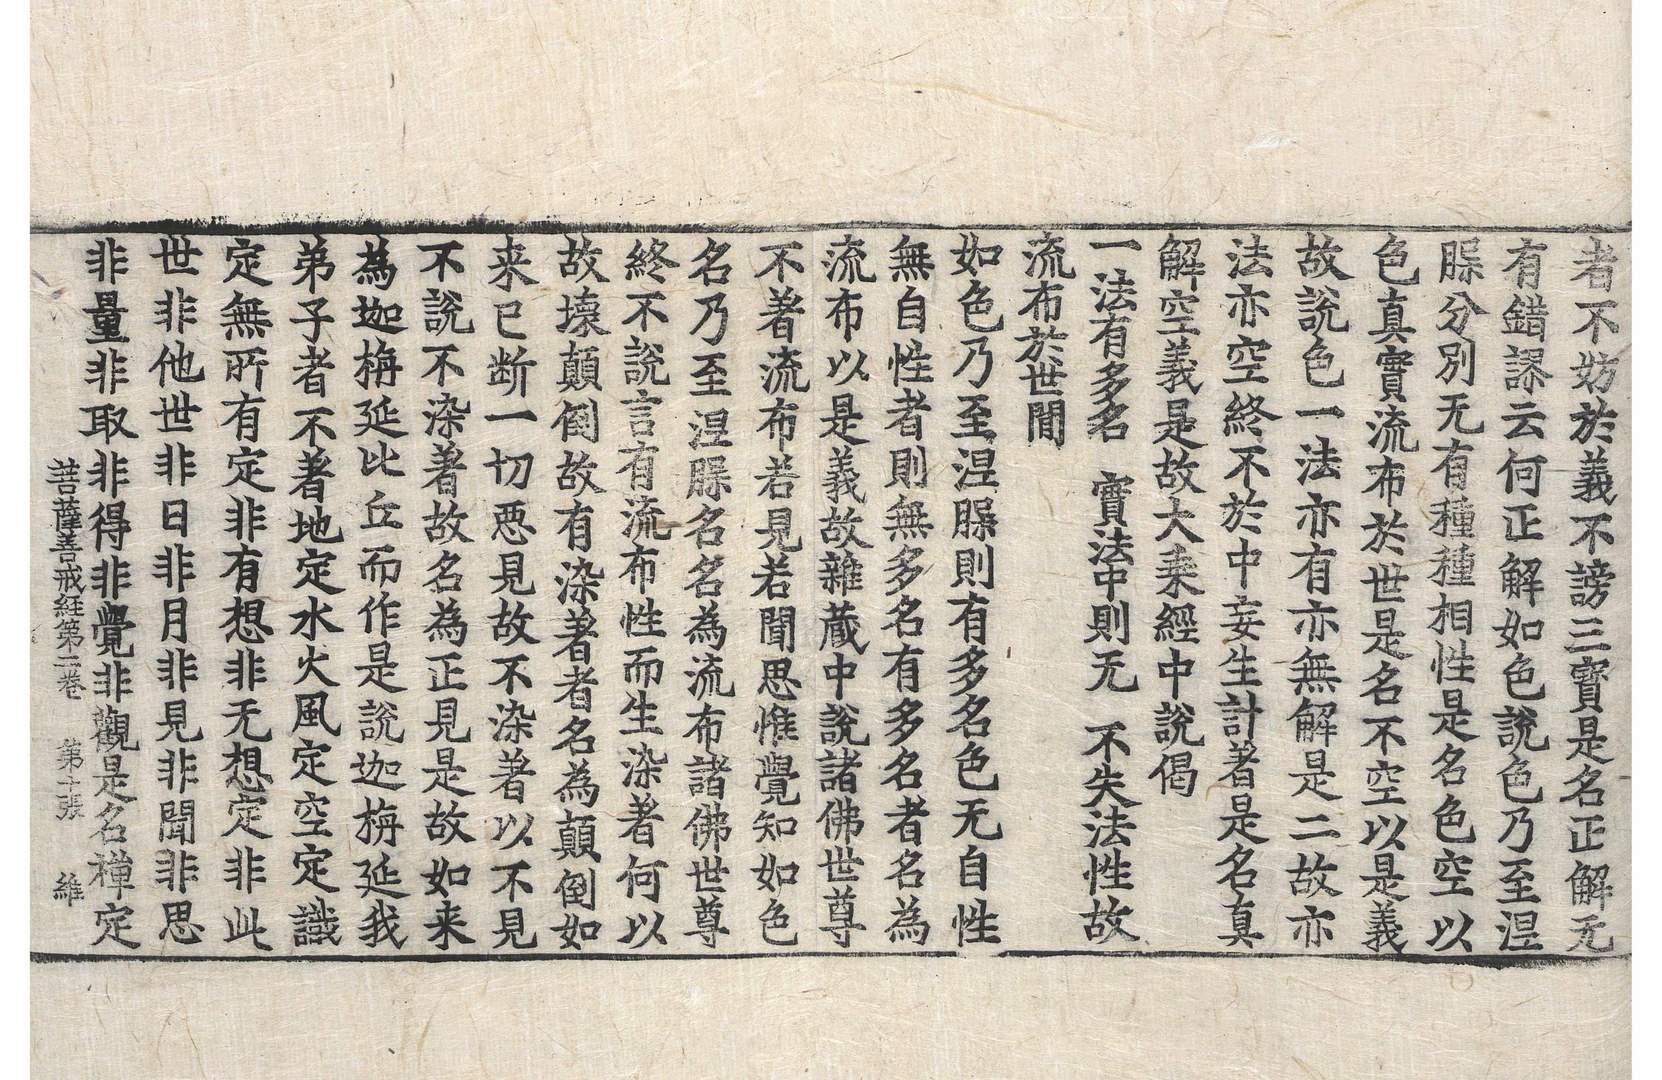 者不妨於義不謗三寶是名正解无
有錯謬云何正解如色說色乃至涅
㬷分別无有種種相性是名色空以
色真實流布於世是名不空以是義
故說色一法亦有亦無解是二故亦
法亦空終不於中妄生計著是名真
解空義是故大乘經中說偈
一法有多名　實法中則无　不失法性故
流布於世間
如色乃至涅㬷則有多名色无自性
無自性者則無多名有多名者名為
流布以是義故雜蔵中說諸佛世尊
不著流布若見若聞思惟覺知如色
名乃至涅㬷名名為流布諸佛世尊
終不說言有流布性而生染著何以
故壞顛倒故有染著者名為顛倒如
来已断一切惡見故不染著以不見
不說不染著故名為正見是故如来
為迦旃延比丘而作是說迦旃延我
弟子者不著地定水火風定空定識
定無所有定非有想非无想定非此
世非他世非日非月非見非聞非思
非量非取非得非覺非觀是名禪定
菩薩善戒経第二卷　第十張　維